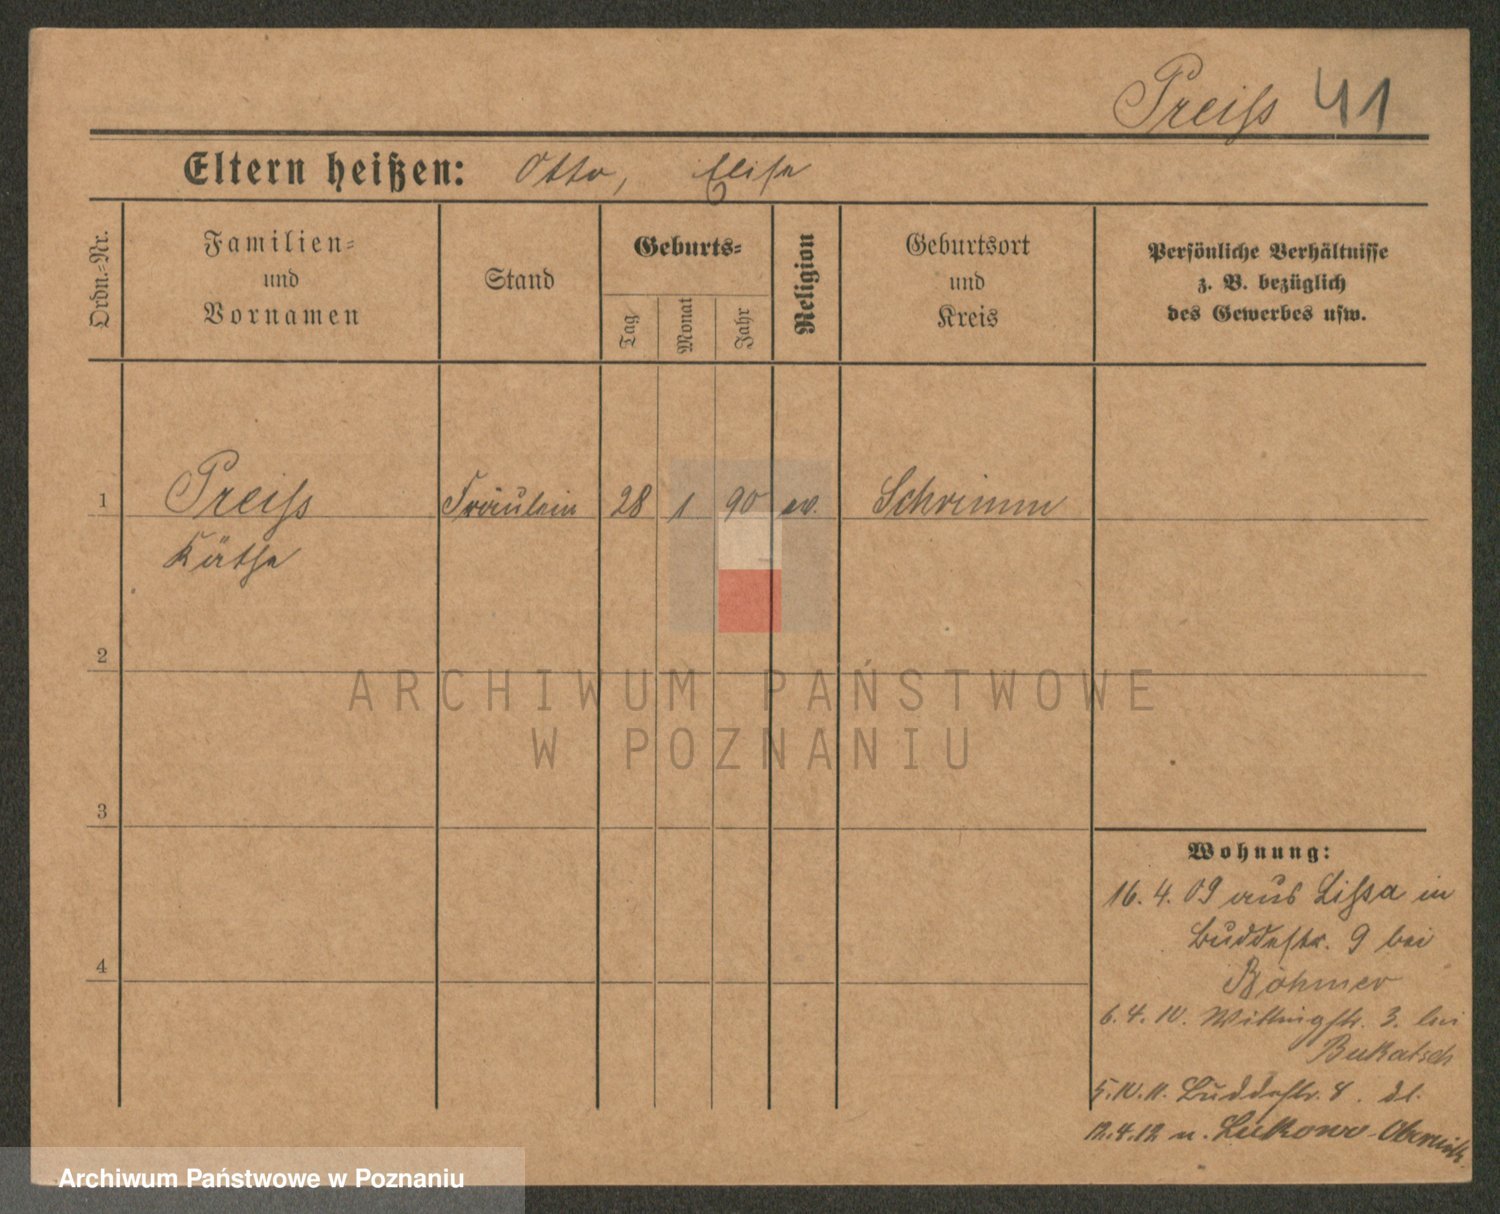 Preiss 41
Eltern heißen: Otto, Elise
Ordn.-Nr.
Familien-
und
Vornamen
Stand
Geburts-
Tag
Monat
Jahr
Religion
Geburtsort
und
Kreis
Persönliche Verhältnisse
z. B. bezüglich
des Gewerbes usw.
1 Preiss Fräulein 28 1 90 ev. Schrimm
Käthe
2
3
4
Wohnung:
16. 4. 09 aus Lissa in
Buddestr. 9 bei
Böhmer
6. 4. 10. Wittingstr. 3. bei
Bukatsch
5. 10. 11. Buddestr. 8. dl.
12. 4. 12 n. Lukowo-Obornik
ARCHIWUM PAŃSTWOWE
W POZNANIU
Archiwum Państwowe w Poznaniu